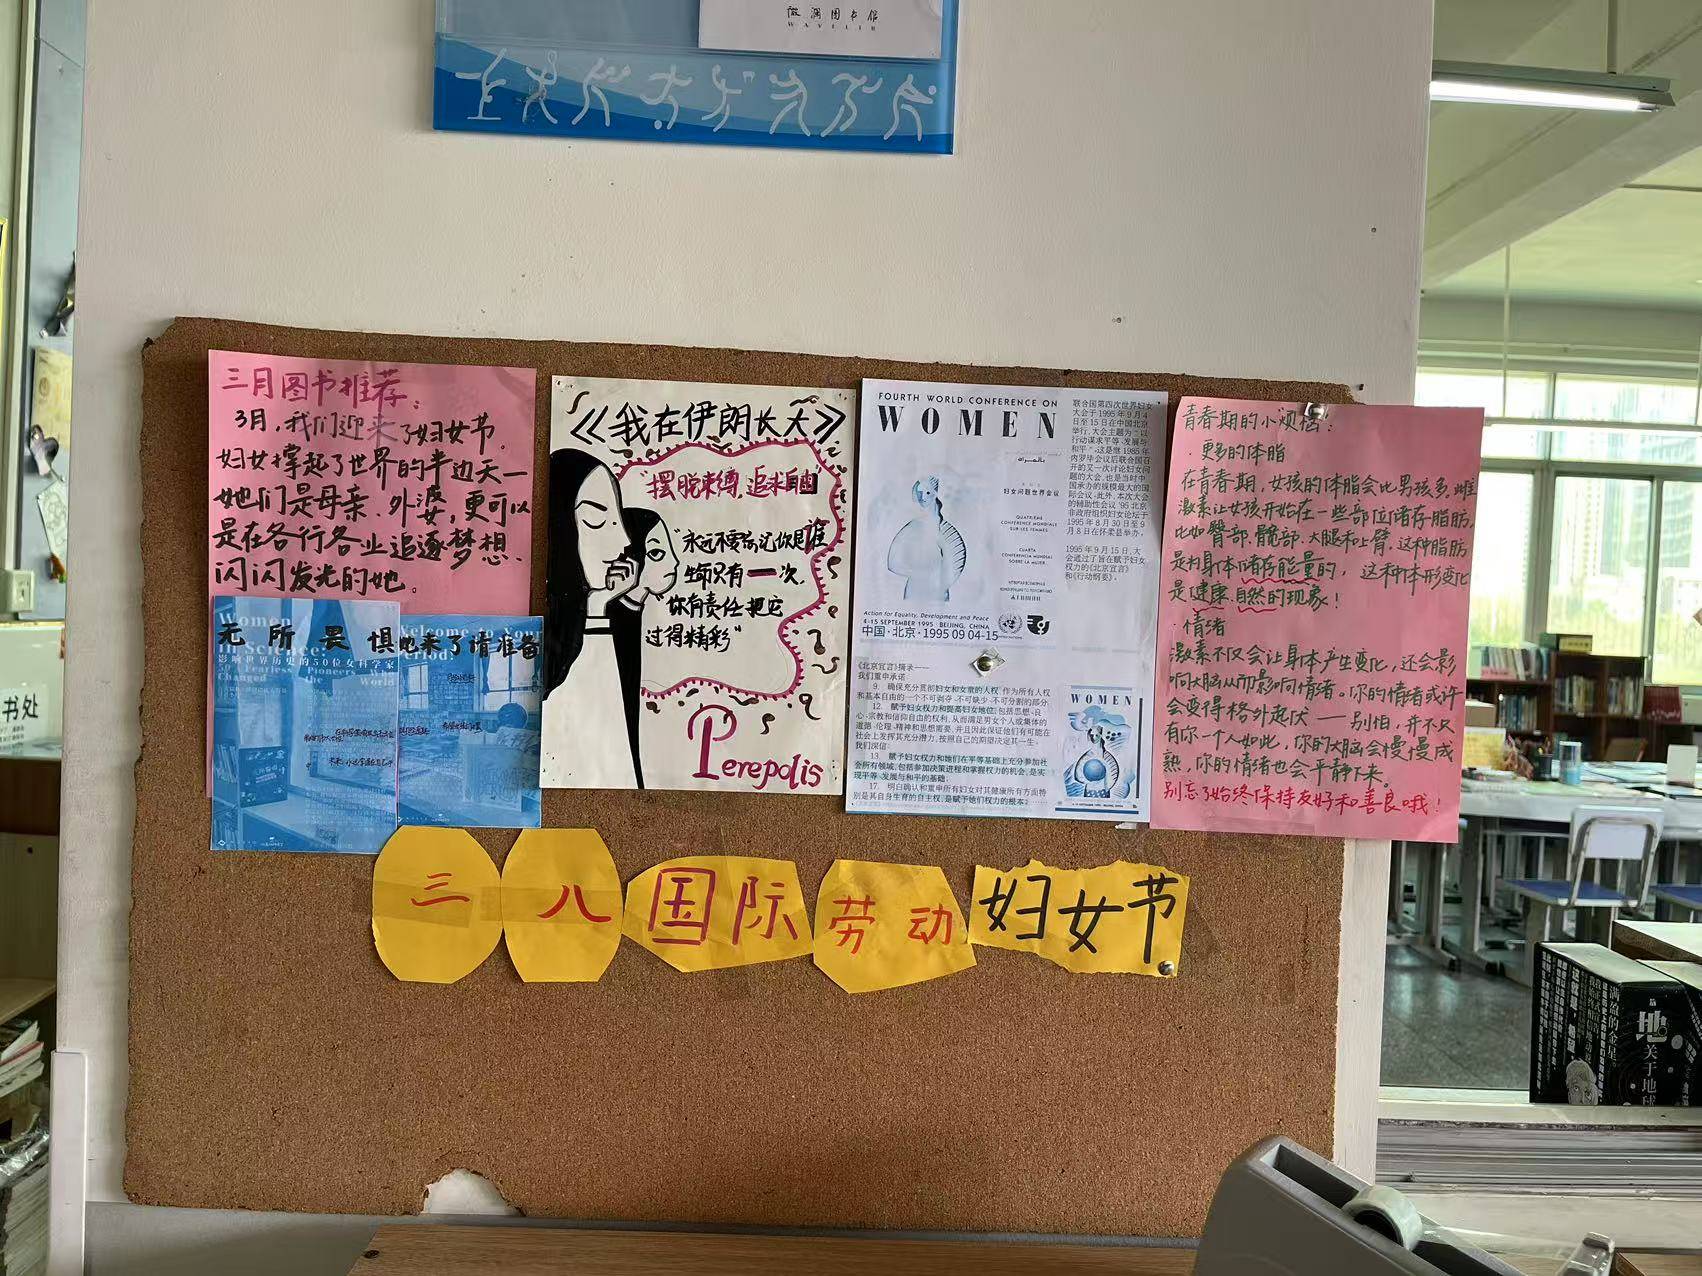 微澜图书馆
三月图书推荐:
3月,我们迎来了妇女节。
妇女撑起了世界的半边天一
她们是母亲、外婆,更可以
是在各行各业追逐梦想、
闪闪发光的她。
Women
in Science:
无所畏惧
影响世界历史的50位女科学家
50 Fearless Pioneers
Changed the World
她来了请准备
Welcome to Your
Period!
《我在伊朗长大》
"摆脱束缚,追求自由"
"永远不要忘记你是谁
生命只有一次,
"你有责任把它
过得精彩"
Perepolis
FOURTH WORLD CONFERENCE ON
WOMEN
妇女问题世界会议
QUATRIÈME
CONFÉRENCE MONDIALE
SUR LES FEMMES
CUARTA
CONFERENCIA MUNDIAL
SOBRE LA MUJER
Action for Equality, Development and Peace
4-15 SEPTEMBER 1995 BEIJING, CHINA
中国·北京·1995 09 04-15
联合国第四次世界妇女
大会于1995年9月4
日至15日在中国北京
举行,大会主题为"以
行动谋求平等、发展与
和平",这是继1985年
内罗毕会议后联合国召
开的又一次讨论妇女问
题的大会,也是当时中
国承办的规模最大的国
际会议。此外,本次大会
的辅助性会议'95北京
非政府组织妇女论坛于
1995年8月30日至9
月8日在怀柔县举办。
1995年9月15日,大
会通过了旨在赋予妇女
权力的《北京宣言》
和《行动纲要》。
《北京宣言》摘录——
我们重申承诺:
9. 确保充分贯彻妇女和女童的人权,作为所有人权
和基本自由的一个不可剥夺、不可缺少、不可分割的部分;
12. 赋予妇女权力和提高妇女地位,包括思想、良
心、宗教和信仰自由的权利,从而满足男女个人或集体的
道德、伦理、精神和思想需要,并且因此保证他们有可能在
社会上发挥其充分潜力,按照自己的期望决定其一生。
我们深信:
13. 赋予妇女权力和她们在平等基础上充分参加社
会所有领域,包括参加决策进程和掌握权力的机会,是实
现平等、发展与和平的基础;
17. 明白确认和重申所有妇女对其健康所有方面特
别是其自身生育的自主权,是赋予她们权力的根本;
WOMEN
青春期的小烦恼:
·更多的体脂
在青春期,女孩的体脂会比男孩多,雌
激素让女孩开始在一些部位储存脂肪,
比如臀部、髋部、大腿和上臂,这种脂肪
是为身体储存能量的,这种体形变化
是健康自然的现象!
·情绪
激素不仅会让身体产生变化,还会影
响大脑从而影响情绪。你的情绪或许
会变得格外起伏——别怕,并不只
有你一个人如此,你的大脑会慢慢成
熟,你的情绪也会平静下来。
别忘了始终保持友好和善良哦!
三八国际劳动妇女节
书处
满盈的金星。
地
关于地球